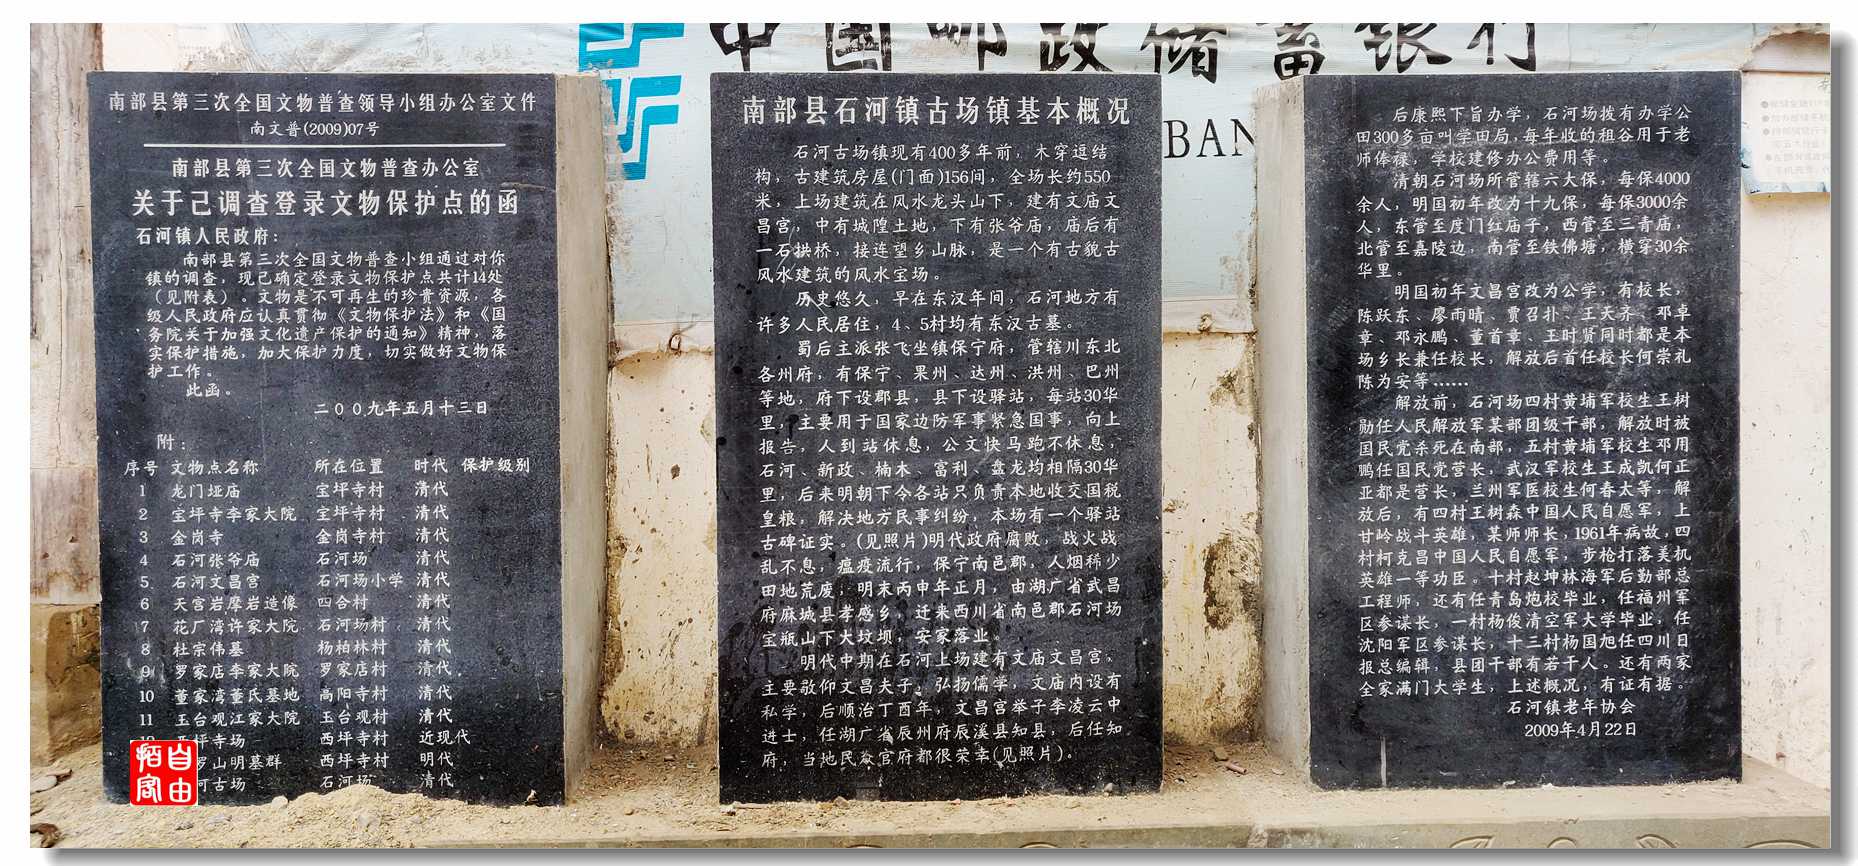 中国邮政储蓄银行
BAN
南部县第三次全国文物普查领导小组办公室文件
南文普(2009)07号
南部县第三次全国文物普查办公室
关于己调查登录文物保护点的函
石河镇人民政府：
南部县第三次全国文物普查小组通过对你
镇的调查，现已确定登录文物保护点共计14处
（见附表）。文物是不可再生的珍贵资源，各
级人民政府应认真贯彻《文物保护法》和《国
务院关于加强文化遗产保护的通知》精神，落
实保护措施，加大保护力度，切实做好文物保
护工作。
此函。
二００九年五月十三日
附：
序号 文物点名称 所在位置 时代 保护级别
1 龙门垭庙 宝坪寺村 清代
2 宝坪寺李家大院 宝坪寺村 清代
3 金岗寺 金岗寺村 清代
4 石河张爷庙 石河场 清代
5 石河文昌宫 石河场小学 清代
6 天宫岩摩岩造像 四合村 清代
7 花厂湾许家大院 石河场村 清代
8 杜宗伟墓 杨柏林村 清代
9 罗家店李家大院 罗家店村 清代
10 董家湾董氏墓地 高阳寺村 清代
11 玉台观江家大院 玉台观村 清代
坪寺场 西坪寺村 近现代
罗山明墓群 西坪寺村 明代
河古场 石河场 清代
自由
陌客
南部县石河镇古场镇基本概况
石河古场镇现有400多年前，木穿逗结
构，古建筑房屋(门面)156间，全场长约550
米，上场建筑在风水龙头山下，建有文庙文
昌宫，中有城隍土地，下有张爷庙，庙后有
一石拱桥，接连望乡山脉，是一个有古貌古
风水建筑的风水宝场。
历史悠久，早在东汉年间，石河地方有
许多人民居住，4、5村均有东汉古墓。
蜀后主派张飞坐镇保宁府，管辖川东北
各州府，有保宁、果州、达州、洪州、巴州
等地，府下设郡县，县下设驿站，每站30华
里，主要用于国家边防军事紧急国事，向上
报告，人到站休息，公文快马跑不休息，
石河、新政、楠木、富利、盘龙均相隔30华
里，后来明朝下令各站只负责本地收交国税
皇粮，解决地方民事纠纷，本场有一个驿站
古碑证实。(见照片)明代政府腐败，战火战
乱不息，瘟疫流行，保宁南邑郡，人烟稀少
田地荒废，明末丙申年正月，由湖广省武昌
府麻城县孝感乡，迁来西川省南邑郡石河场
宝瓶山下大坟坝，安家落业。
明代中期在石河上场建有文庙文昌宫，
主要敬仰文昌夫子，弘扬儒学，文庙内设有
私学，后顺治丁酉年，文昌宫举子李凌云中
进士，任湖广省辰州府辰溪县知县，后任知
府，当地民众官府都很荣幸(见照片)。
后康熙下旨办学，石河场拨有办学公
田300多亩叫学田局，每年收的租谷用于老
师俸禄，学校建修办公费用等。
清朝石河场所管辖六大保，每保4000
余人，明国初年改为十九保，每保3000余
人，东管至度门红庙子，西管至三青庙，
北管至嘉陵边，南管至铁佛塘，横穿30余
华里。
明国初年文昌宫改为公学，有校长，
陈跃东、廖雨晴、贾召朴、王天齐、邓卓
章、邓永鹏、董首章、王时贤同时都是本
场乡长兼任校长，解放后首任校长何崇礼
陈为安等……
解放前，石河场四村黄埔军校生王树
勋任人民解放军某部团级干部，解放时被
国民党杀死在南部，五村黄埔军校生邓用
鹏任国民党营长，武汉军校生王成凯何正
亚都是营长，兰州军医校生何春太等，解
放后，有四村王树森中国人民自愿军，上
甘岭战斗英雄，某师师长，1961年病故，四
村柯克昌中国人民自愿军，步枪打落美机
英雄一等功臣。十村赵坤林海军后勤部总
工程师，还有任青岛炮校毕业，任福州军
区参谋长，一村杨俊清空军大学毕业，任
沈阳军区参谋长，十三村杨国旭任四川日
报总编辑，县团干部有若干人。还有两家
全家满门大学生，上述概况，有证有据。
石河镇老年协会
2009年4月22日